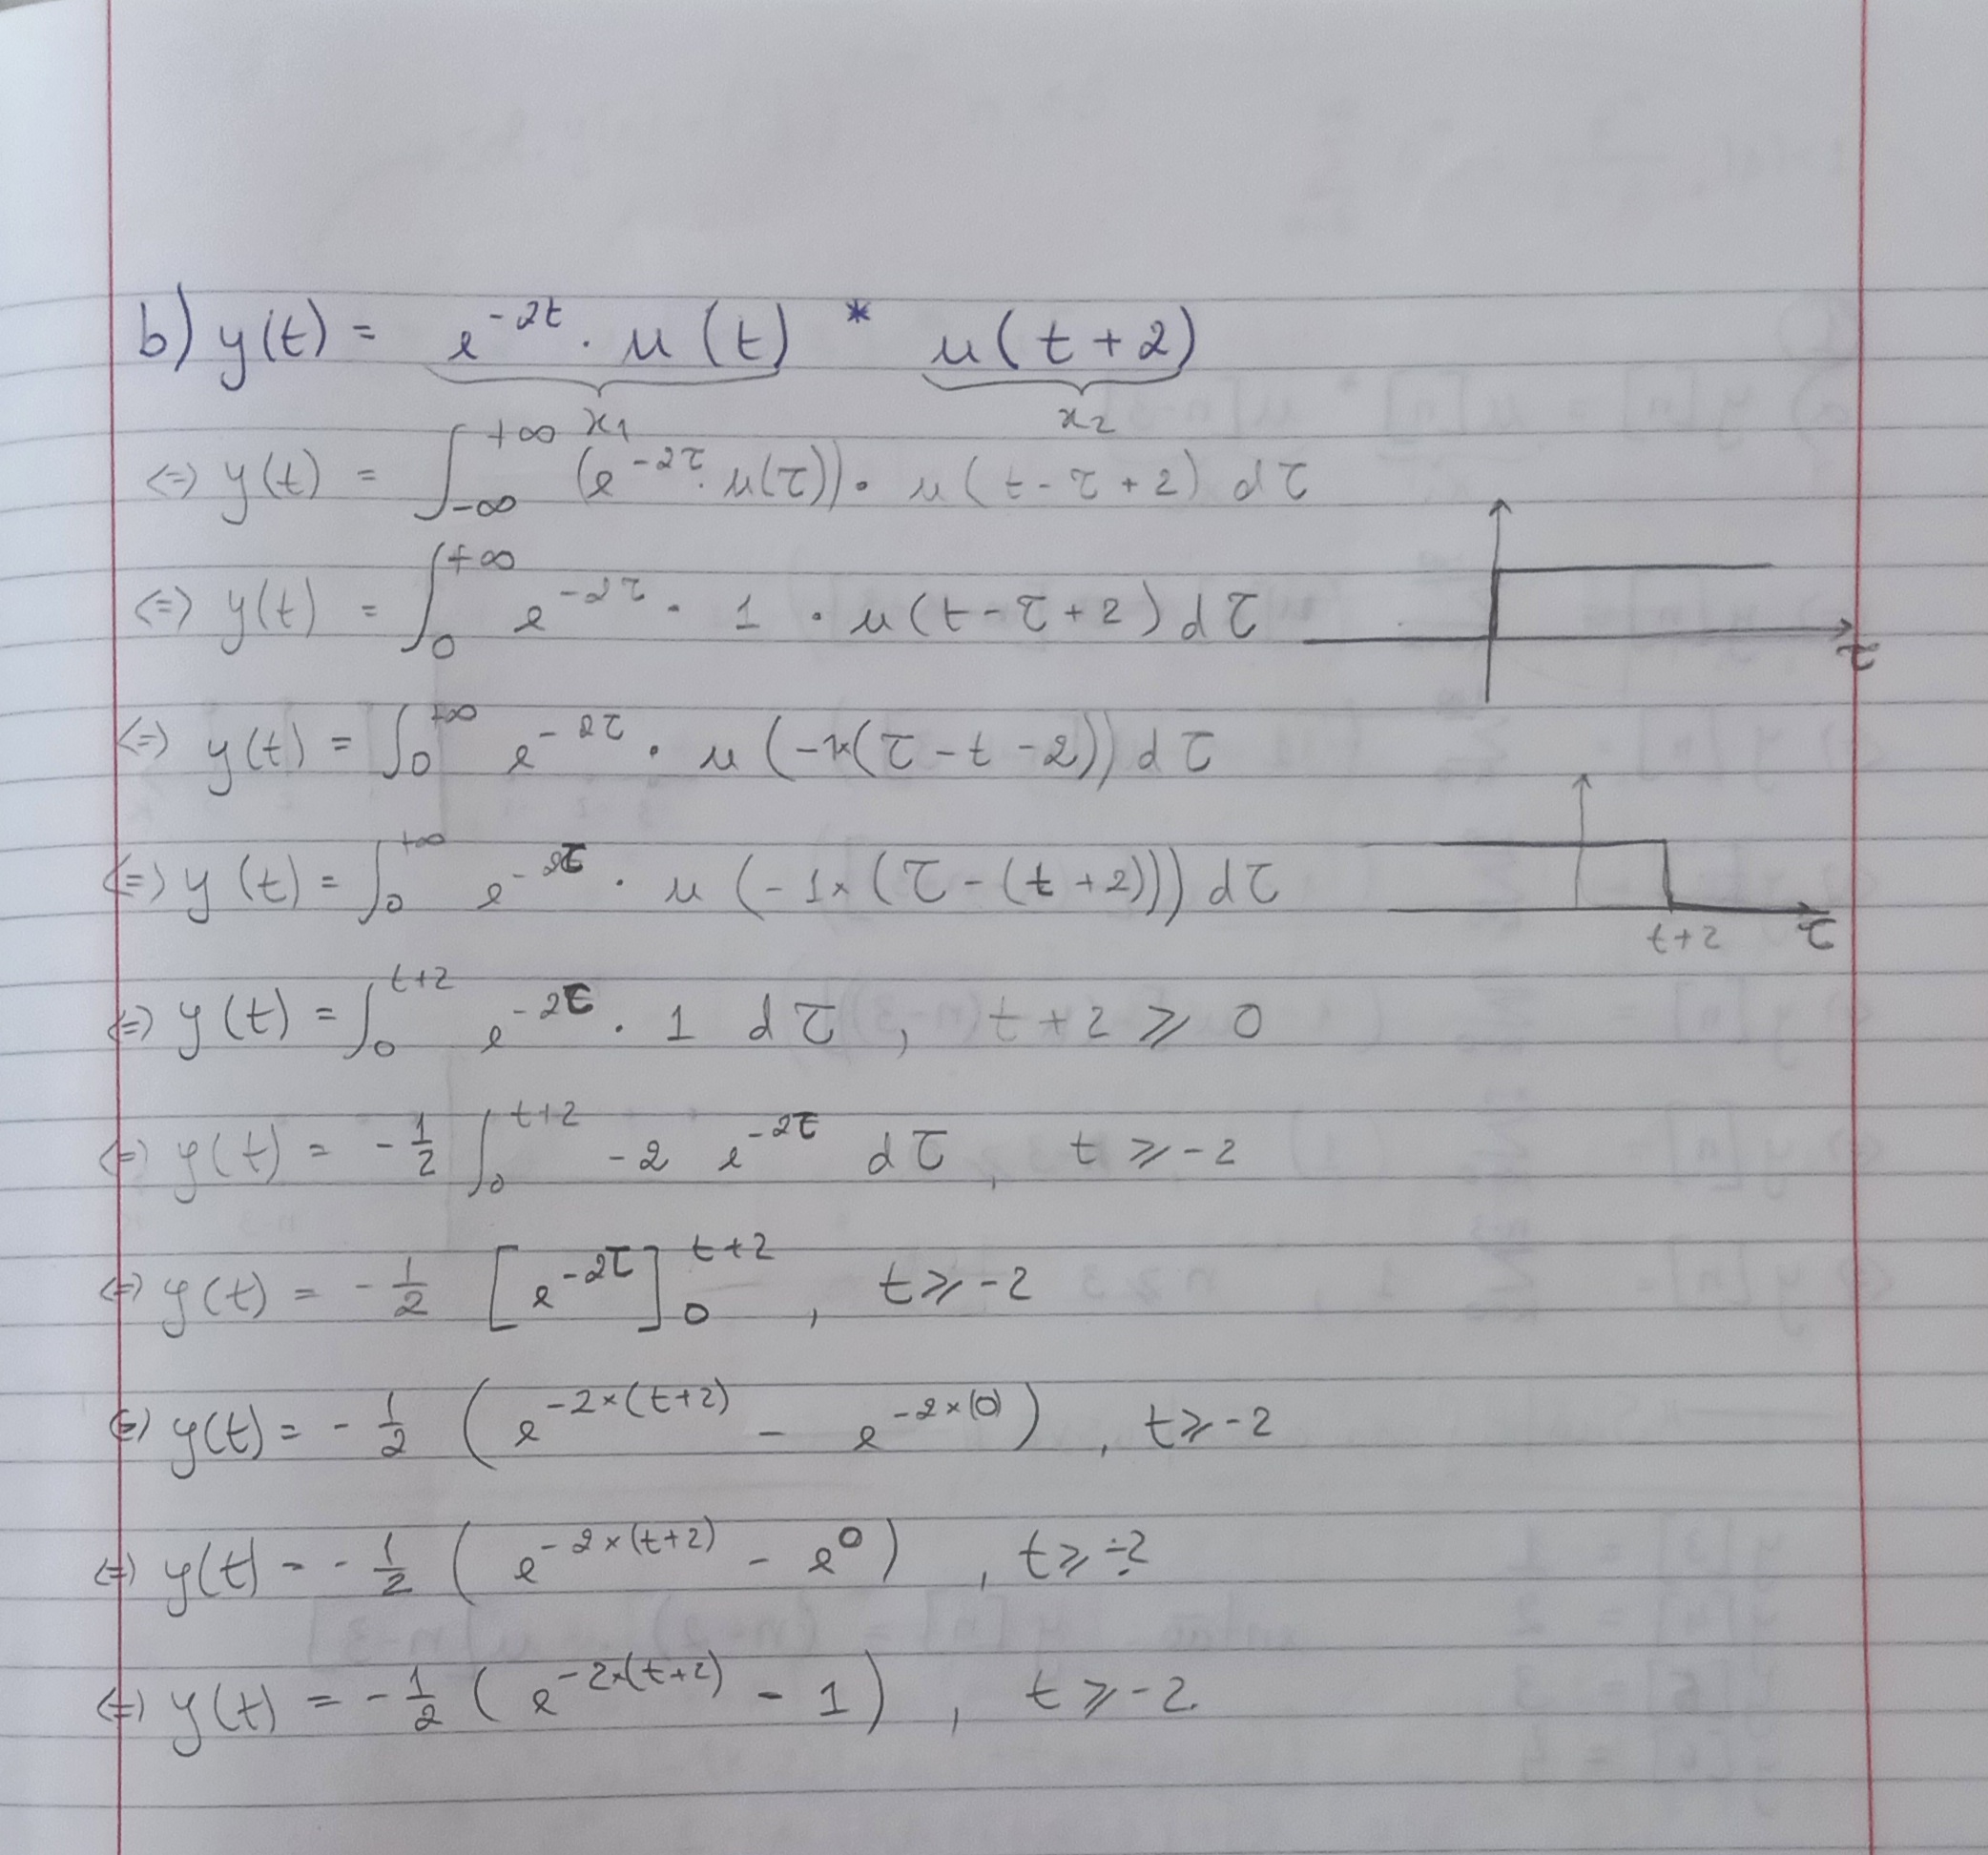 b) y(t) = e^{-2t} . u(t) * u(t+2)
x1 x2
<=> y(t) = ∫_{-∞}^{+∞} (e^{-2τ} . u(τ)) . u(t-τ+2) dτ
<=> y(t) = ∫_0^{+∞} e^{-2τ} . 1 . u(t-τ+2) dτ
τ
<=> y(t) = ∫_0^{+∞} e^{-2τ} . u(-1×(τ-t-2)) dτ
<=> y(t) = ∫_0^{+∞} e^{-2τ} . u(-1×(τ-(t+2))) dτ
t+2 τ
<=> y(t) = ∫_0^{t+2} e^{-2τ} . 1 dτ , t+2 ⩾ 0
<=> y(t) = -1/2 ∫_0^{t+2} -2 e^{-2τ} dτ , t ⩾ -2
<=> y(t) = -1/2 [e^{-2τ}]_0^{t+2} , t ⩾ -2
<=> y(t) = -1/2 (e^{-2×(t+2)} - e^{-2×(0)}) , t ⩾ -2
<=> y(t) = -1/2 (e^{-2×(t+2)} - e^0) , t ⩾ -2
<=> y(t) = -1/2 (e^{-2×(t+2)} - 1) , t ⩾ -2